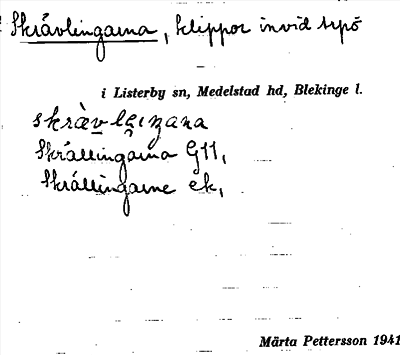 Skrävlingarna, klippor invid Arpö
i Listerby sn, Medelstad hd, Blekinge l.
skràvleŋana
Skrällingarna G11,
Skrällingarne ek,
Märta Pettersson 1941